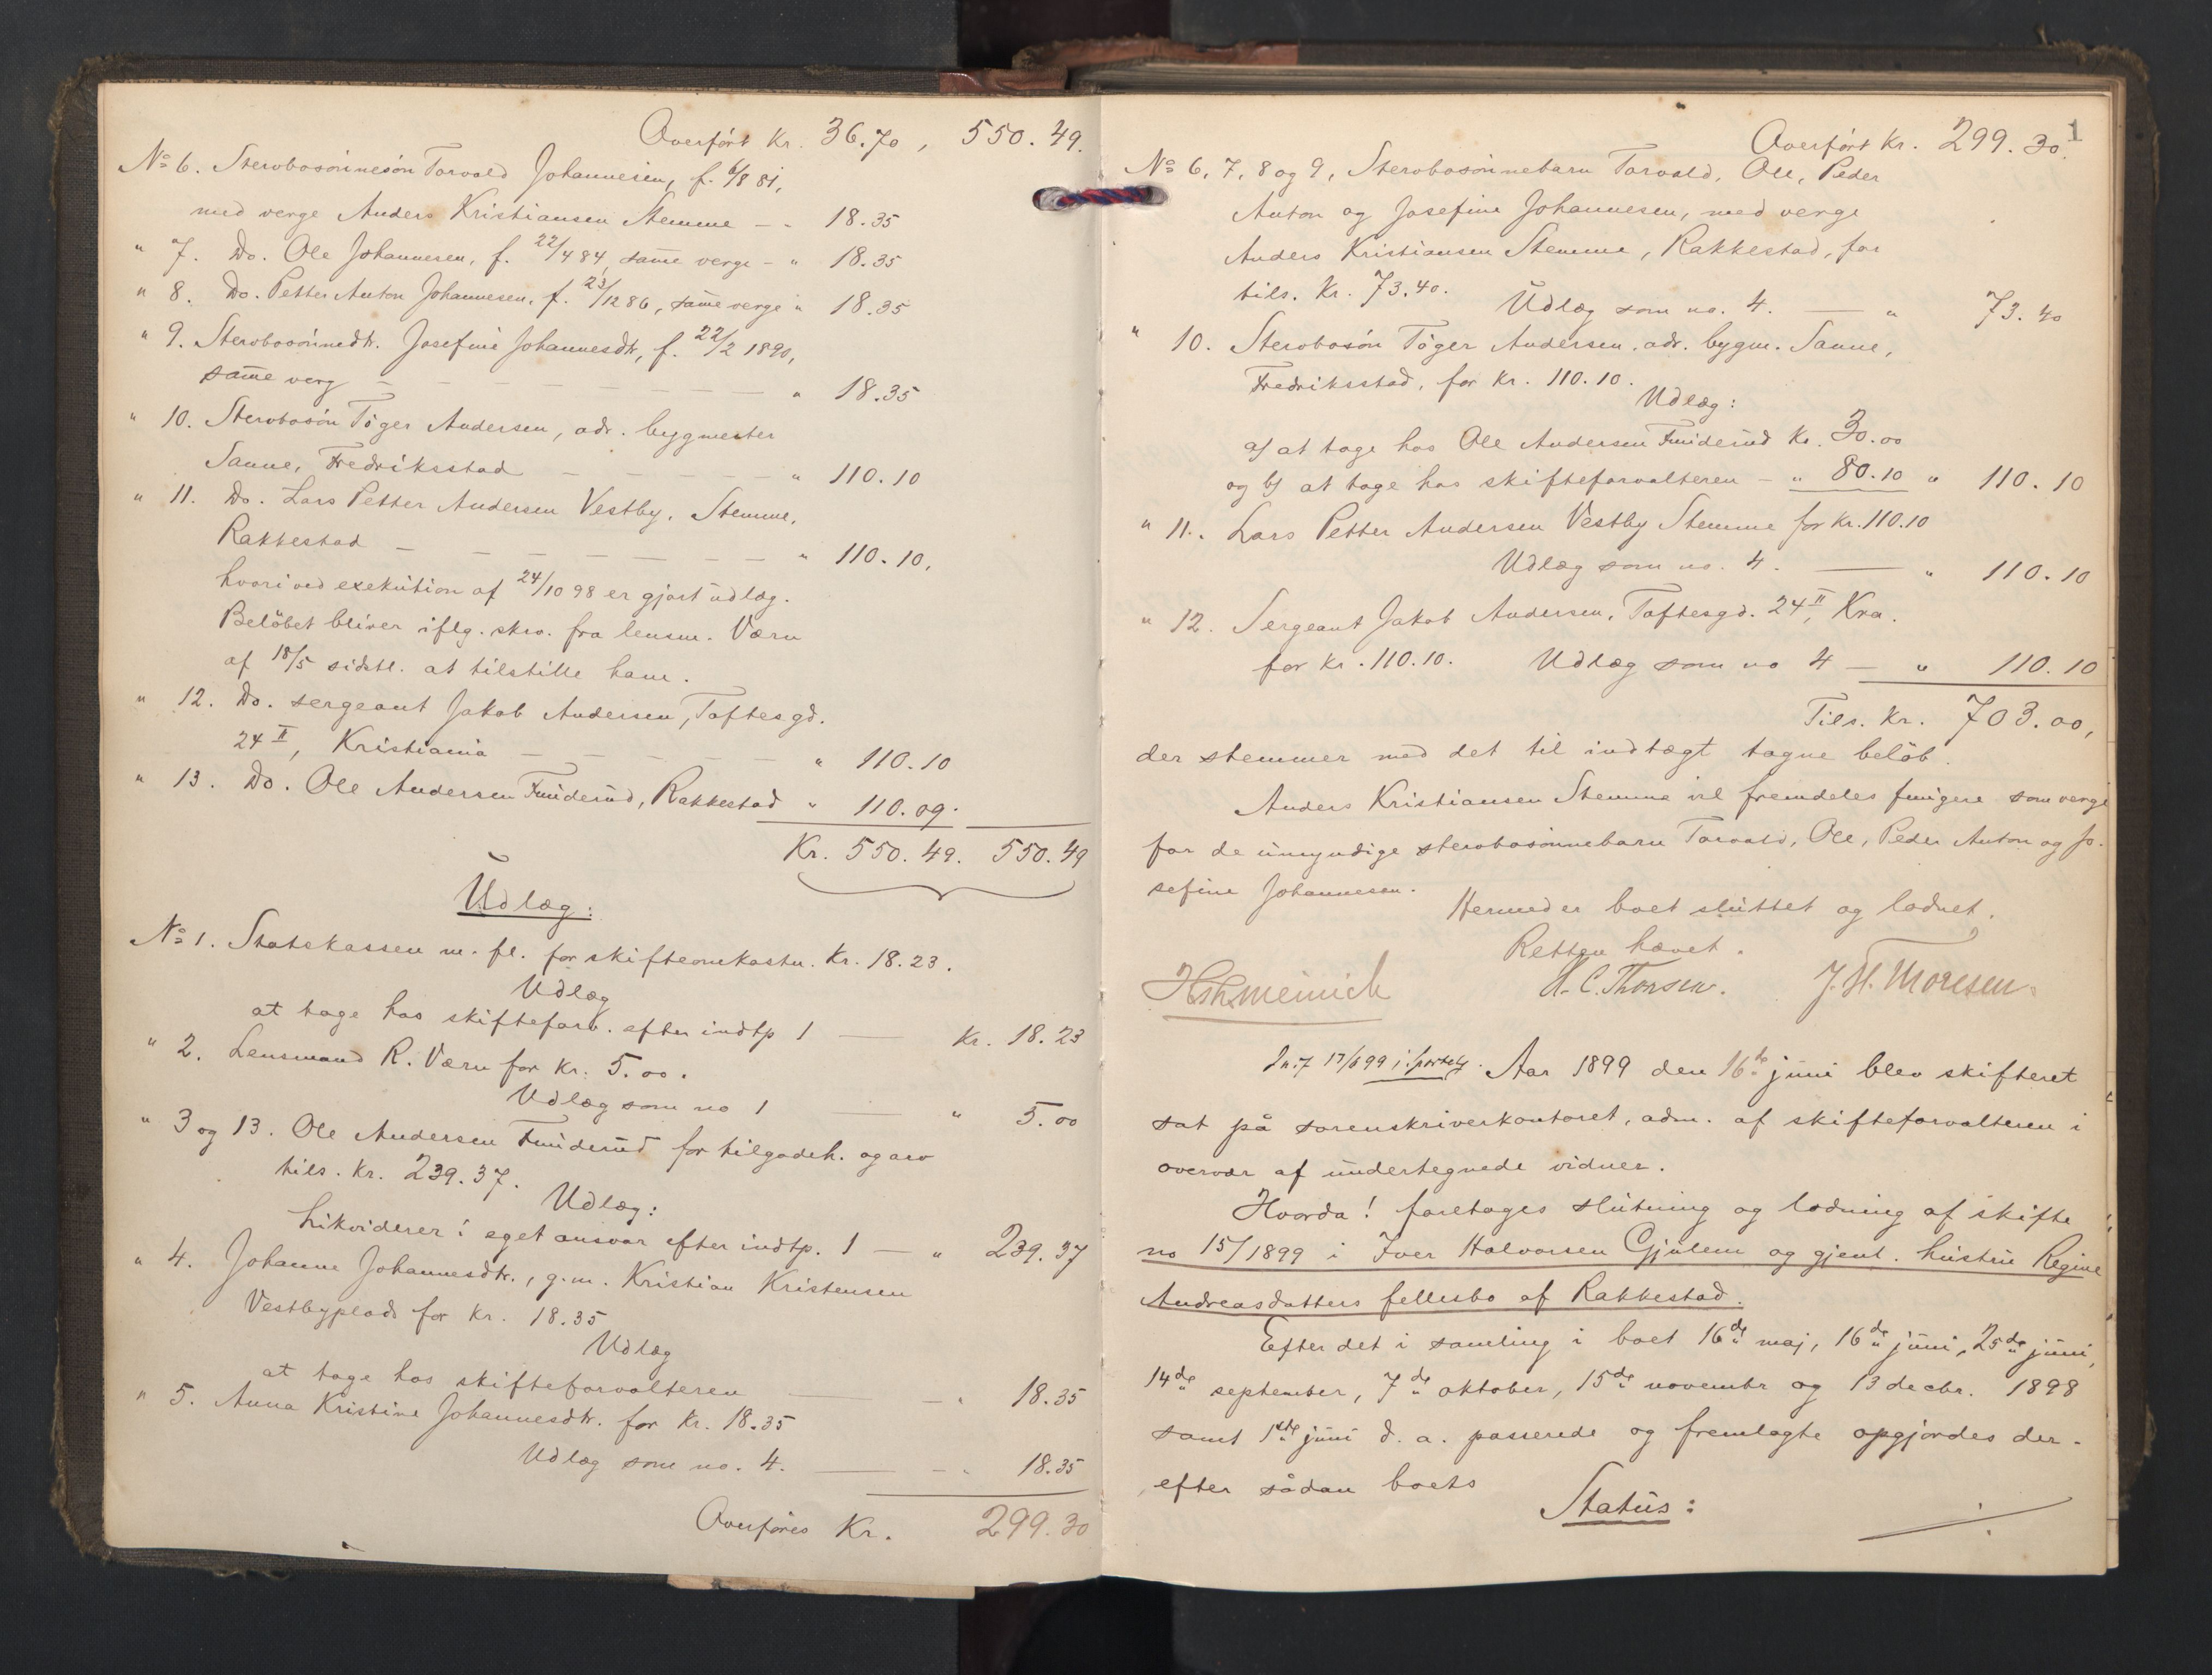 Overført Kr. 36.70, 550.49.
No 6. Stervbosönnesön Torvald Johannesen, f. 6/8 81,
med verge Anders Kristiansen Stemme — " 18.35
" 7. Do. Ole Johannesen, f. 22/4 84, same verge - " 18.35
" 8. Do. Petter Anton Johannesen, f. 23/12 86, same verge " 18.35
" 9. Stervbosönnedtr. Josefine Johannesdtr, f. 22/2 1890,
same verg — — — — — — — " 18.35
" 10. Stervbosön Töger Andersen, adr. bygmester
Sanne, Fredriksstad — — — — " 110.10
" 11. Do. Lars Petter Andersen Vestby, Stemme,
Rakkestad — — — — — — — " 110.10,
hvori ved exekution af 24/10 98 er gjort udlæg.
Belöbet bliver iflg. skrv. fra lensm. Værn
af 18/5 sidstl. at tilstille ham.
" 12. Do. sergeant Jakob Andersen, Toftesgd.
24 II, Kristiania — — — — — " 110.10
" 13. Do. Ole Andersen Fuiderud, Rakkestad " 110.09.
Kr. 550.49. 550.49
Udlæg:
No 1. Statskassen m. fl. for skifteomkostn. Kr. 18.23.
Udlæg
at tage hos skifteforv. efter indtp 1 — Kr. 18.23
" 2. Lensmand R. Værn for kr. 5.00.
Udlæg som no 1 — " 5.00
" 3 og 13. Ole Andersen Fuiderud for tilgodeh. og arv
tils. kr. 239.37.
Udlæg:
Likviderer i eget ansvar efter indtp. 1 — " 239.37
" 4. Johanne Johannesdtr., g.m. Kristian Kristensen
Vestbyplads for kr. 18.35
Udlæg
at tage hos skifteforvalteren — " 18.35
" 5. Anna Kristine Johannesdtr. for Kr. 18.35
Udlæg som no. 4. — " 18.35
Overføres Kr. 299.30
1
Overført Kr. 299.30.
No 6, 7, 8 og 9, Stervbosönnebarn Torvald, Ole, Peder
Anton og Josefine Johannesen, med verge
Anders Kristiansen Stemme, Rakkestad, for
tils. Kr. 73.40.
Udlæg som no. 4. — " 73.40
" 10. Stervbosön Töger Andersen, adr. bygm. Sanne,
Fredriksstad, for kr. 110.10.
Udlæg:
a/ at tage hos Ole Andersen Fuiderud Kr. 30.00
og b/ at tage hos skifteforvalteren — " 80.10 " 110.10
" 11. Lars Petter Andersen Vestby Stemme for kr. 110.10
Udlæg som no. 4. — " 110.10
" 12. Sergeant Jakob Andersen, Toftesgd. 24 II, Kra.
for kr. 110.10. Udlæg som no 4 — " 110.10
Tils. Kr. 703.00,
der stemmer med det til indtægt tagne belöb.
Anders Kristiansen Stemme vil fremdeles fungere som verge
for de umyndige stervbosönnebarn Torvald, Ole, Peder Anton og Jo-
sefine Johannesen.
Hermed er boet sluttet og lodnet.
Retten hævet.
H. C. Thorsen. J. H. Thoresen.
17/6 99 i Aar 1899 den 16de juni blev skifteret
sat på sorenskriverkontoret, adm. af skifteforvalteren i
overvær af undertegnede vidner.
Hvorda! foretoges slutning og lodning af skifte
no 15/1899 i Iver Halvorsen Gjulem og gjenl. hustru Regine
Andreasdatters fellesbo af Rakkestad.
Efter det i samling i boet 16de maj, 16de juni, 25de juni,
14de september, 7de oktober, 15de novembr og 13 decbr. 1898
samt 1ste juni d. a. passerede og fremlagte opgjordes der-
efter sådan boets
Status: